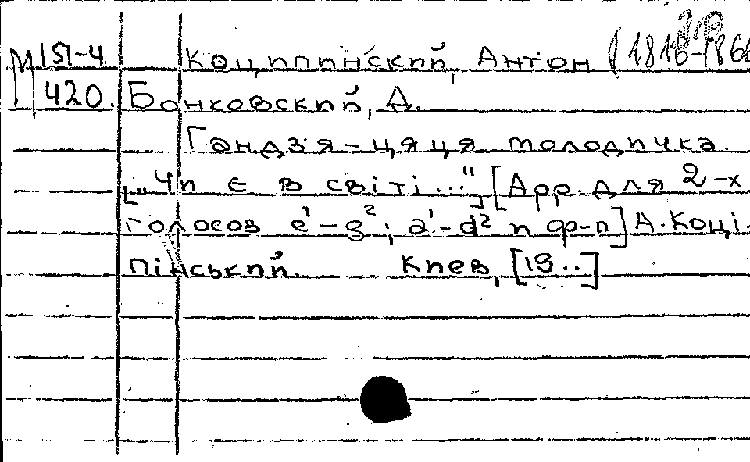 М 151-4 Коципинский, Антон (1816-1866
420. Бонковский, А.
Гандзя-цяця молодичка.
[„Чи є в світі..."] [Арр. для 2-х
голосов e¹-g²; a¹-d² и ф-п] А. Коці-
пінський. Киев, [19..]